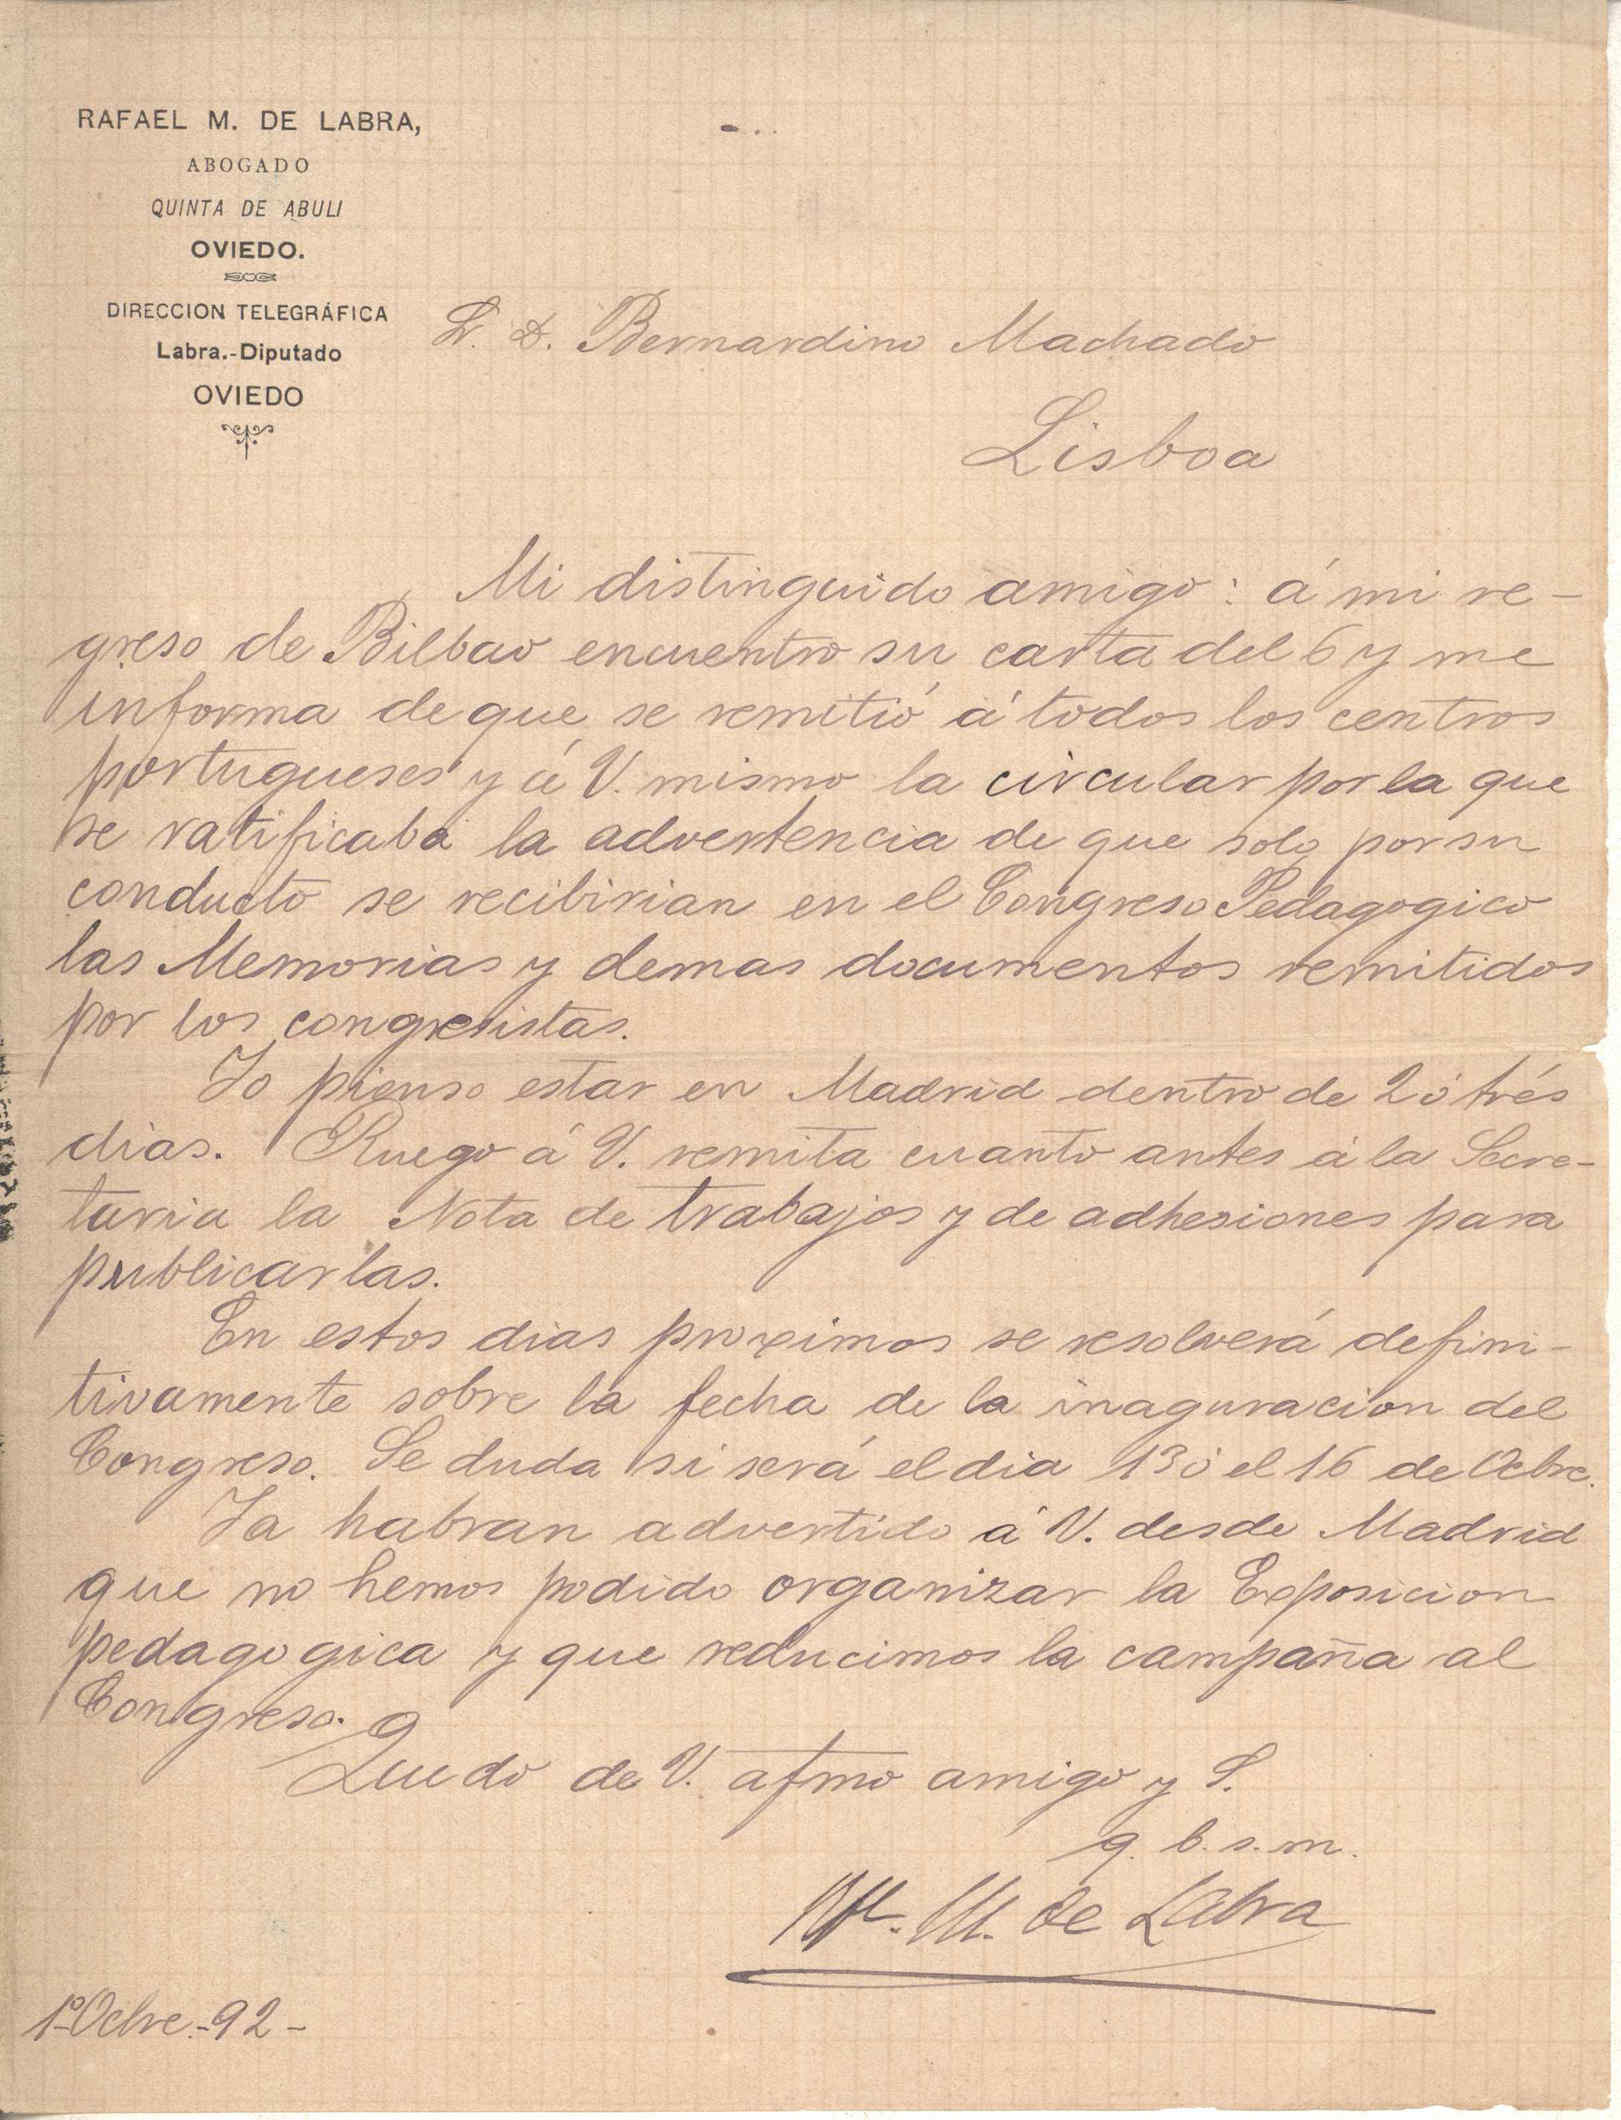 RAFAEL M. DE LABRA,
ABOGADO
QUINTA DE ABULI
OVIEDO.
DIRECCION TELEGRÁFICA
Labra.-Diputado
OVIEDO
Sr. D. Bernardino Machado
Lisboa
Mi distinguido amigo: á mi re-
greso de Bilbao encuentro su carta del 6 y me
informa de que se remitió á todos los centros
portugueses y á V. mismo la circular por la que
se ratificaba la advertencia de que solo por su
conducto se recibirian en el Congreso Pedagogico
las Memorias y demas documentos remitidos
por los congresistas.
Yo pienso estar en Madrid dentro de 2 ó trés
dias. Ruego á V. remita cuanto antes á la Secre-
taria la Nota de trabajos y de adhesiones para
publicarlas.
En estos dias proximos se resolverá defini-
tivamente sobre la fecha de la inaguracion del
Congreso. Se duda si será el dia 13 ó el 16 de Ocbre.
Ya habran advertido á V. desde Madrid
que no hemos podido organizar la Exposicion
pedagogica y que reducimos la campaña al
Congreso.
Quedo de V. afmo amigo y S.
q. b. s. m.
M. de Labra
1º Ocbre.-92-